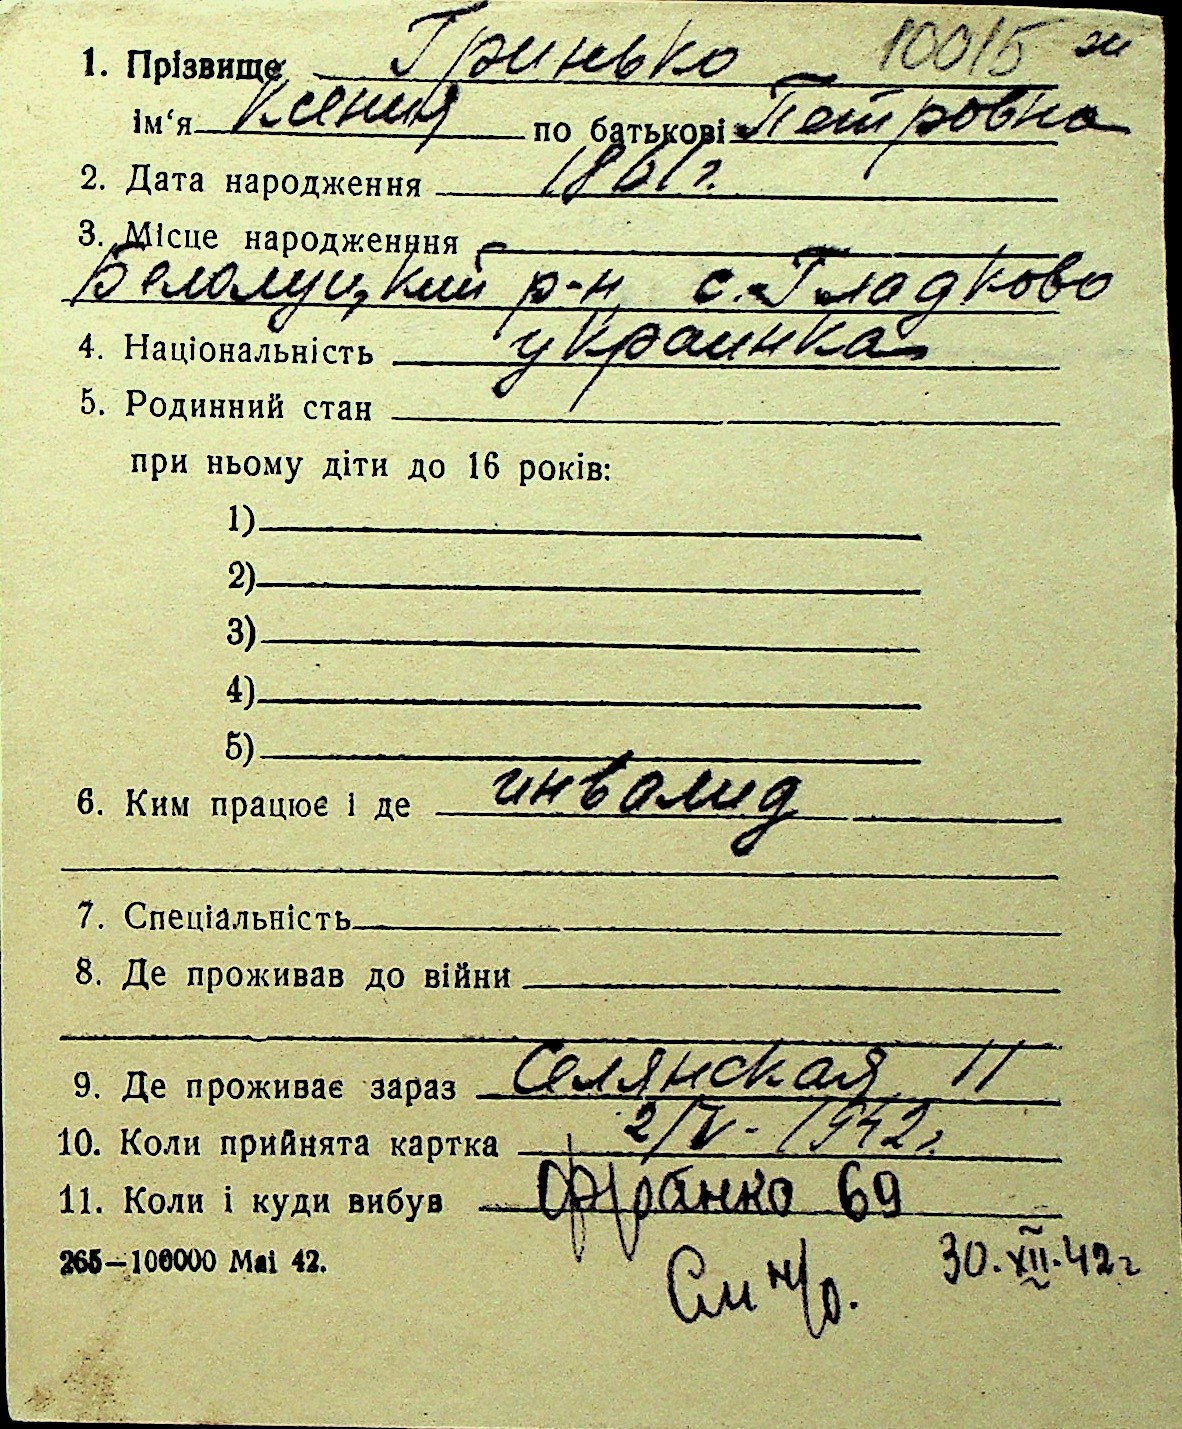 1. Прізвище Гринько 10015 ж
ім'я Ксения по батькові Петровна
2. Дата народження 1861 г.
3. Місце народженння
Беломуцкий р-н с. Гладково
4. Національність украинка
5. Родинний стан
при ньому діти до 16 років:
1)
2)
3)
4)
5)
6. Ким працює і де инвалид
7. Спеціальність
8. Де проживав до війни
9. Де проживає зараз Селянская 11
10. Коли прийнята картка 2/V - 1942 г.
11. Коли і куди вибув Франко 69
265—100000 Маі 42.
См н/о. 30.XII.42 г